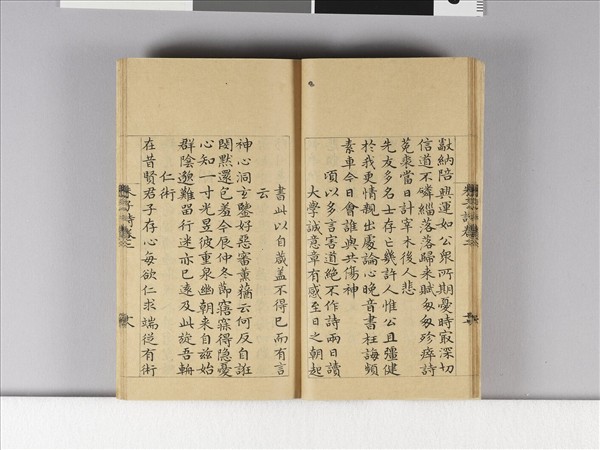 獻納陪興運如公衆所期憂時寂深切
信道不磷緇落落歸來賦匆匆殄瘁詩
菟裘當日計宰木後人悲
先友多名士存亡幾許人惟公且彊健
於我更情親出處論心晚音書枉誨頻
素車今日會誰與共傷神
頃以多言害道絶不作詩兩日讀
大學誠意章有感至日之朝起
書此以自箴蓋不得已而有言
云
神心洞玄鑒好惡審薰蕕云何反自誑
閔默還包羞今辰仲冬節寤寐得隱憂
心知一寸光昱彼重泉幽朝來自玆始
群陰邈難留行迷亦已遠及此旋吾輈
仁術
在昔賢君子存心每欲仁求端從有術